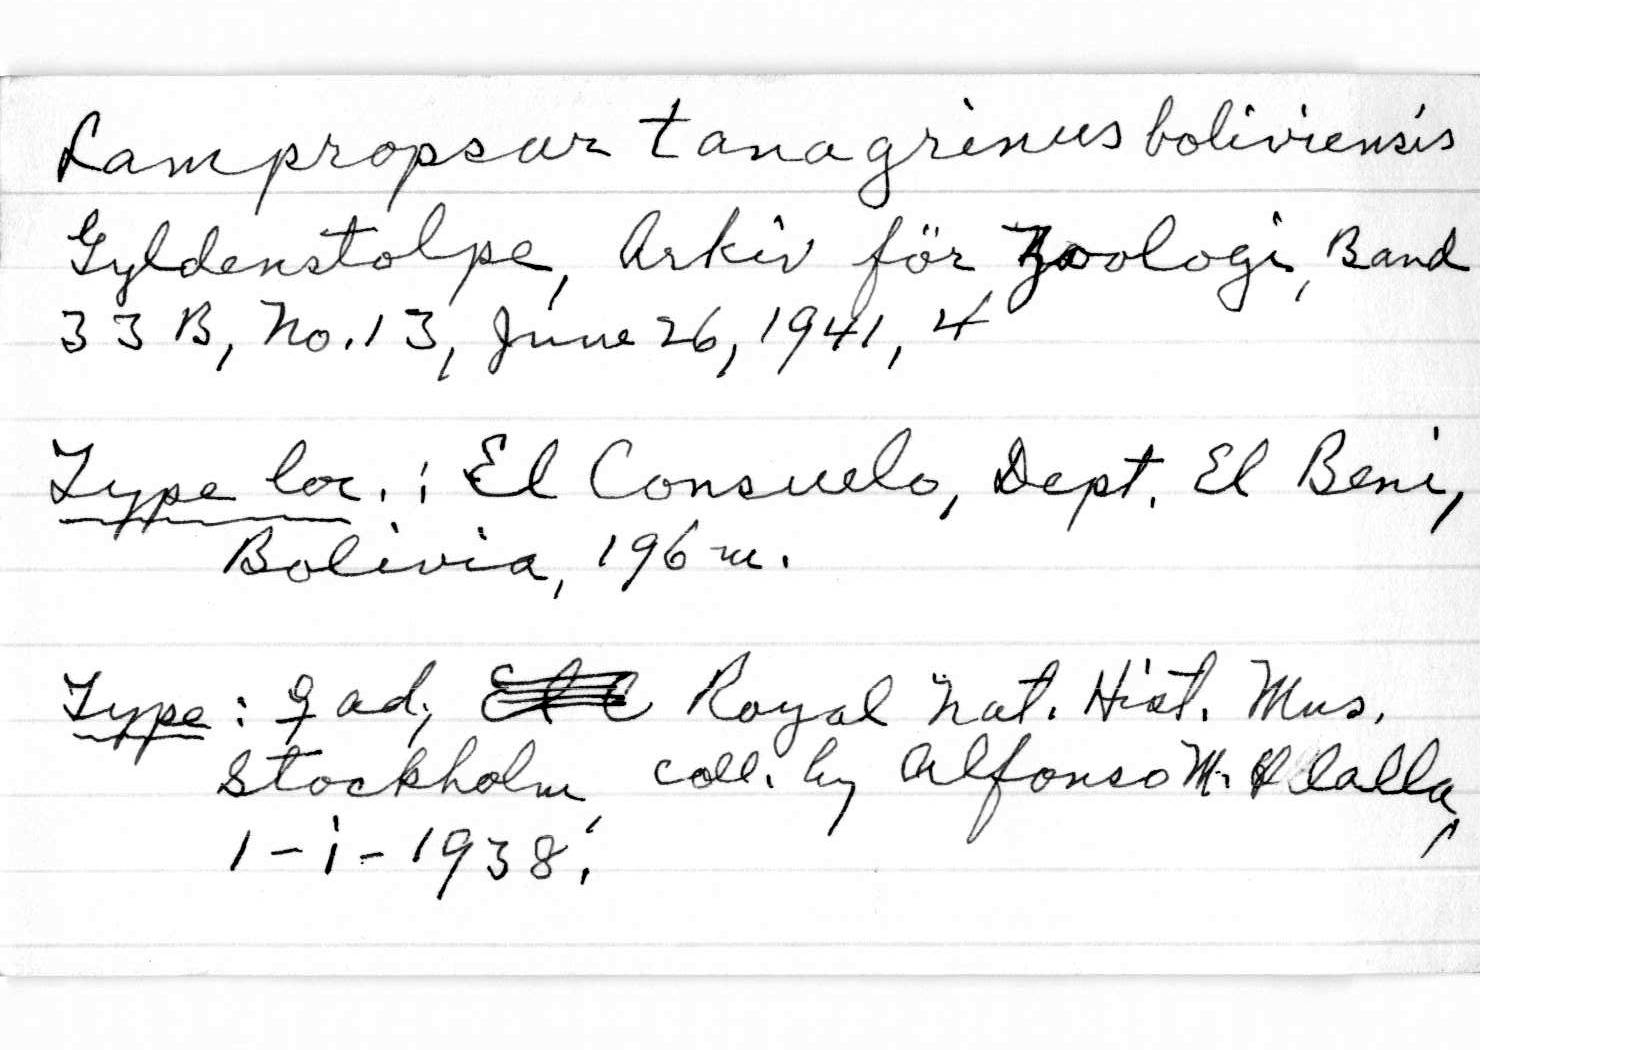 Lampropsar tanagrinus boliviensis
Gyldenstolpe, Arkiv för Zoologi, Band
33 B, No. 13, June 26, 1941, 4
Type loc.: El Consuelo, Dept. El Beni,
Bolivia, 196 m.
Type: ♀ ad, Royal Nat. Hist. Mus.
Stockholm, coll. by Alfonso M. Olalla,
1-i-1938.